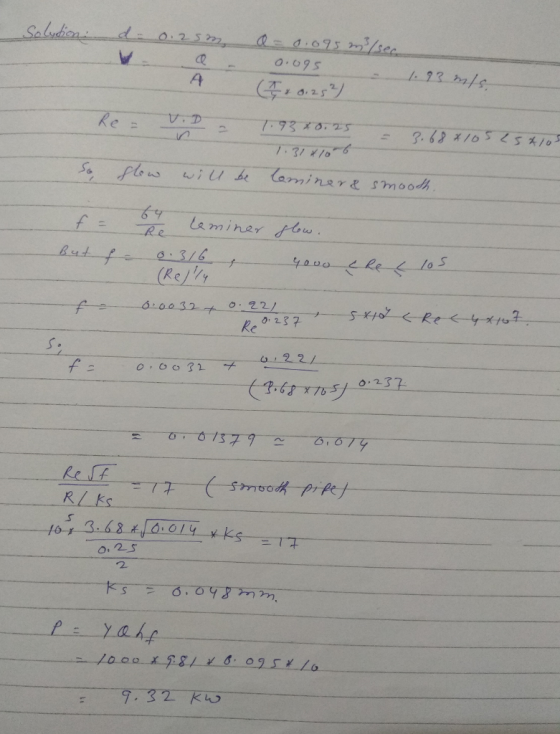 Solution:- d = 0.25m, Q = 0.095 m³/sec.
V = Q/A = 0.095/(π/4 × 0.25²) = 1.93 m/s.
Re = V.D/ν = 1.93×0.25/1.31×10⁻⁶ = 3.68×10⁵ < 5×10⁵
So, flow will be laminer & smooth.
f = 64/Re laminer flow.
But f = 0.316/(Re)^1/4, 4000 < Re < 10⁵
f = 0.0032 + 0.221/Re^0.237, 5×10⁴ < Re < 4×10⁷.
So,
f = 0.0032 + 0.221/(3.68×10⁵)^0.237
= 0.01379 ≃ 0.014
Re√f/R/Ks = 17 (smooth pipe)
10⁵× 3.68×√0.014/(0.25/2) × Ks = 17
Ks = 0.048mm.
P = γQhf
= 1000×9.81×0.095×10
= 9.32 KW